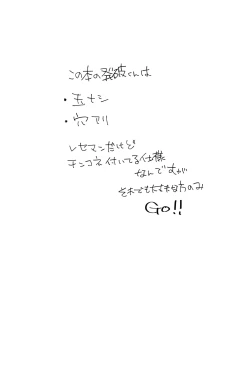 この本の発破くんは
・玉ナシ
・穴アリ
レセマンだけど
チンコネ付いてる仕様
なんですが
それでもだいじょうぶな方のみ
Go!!